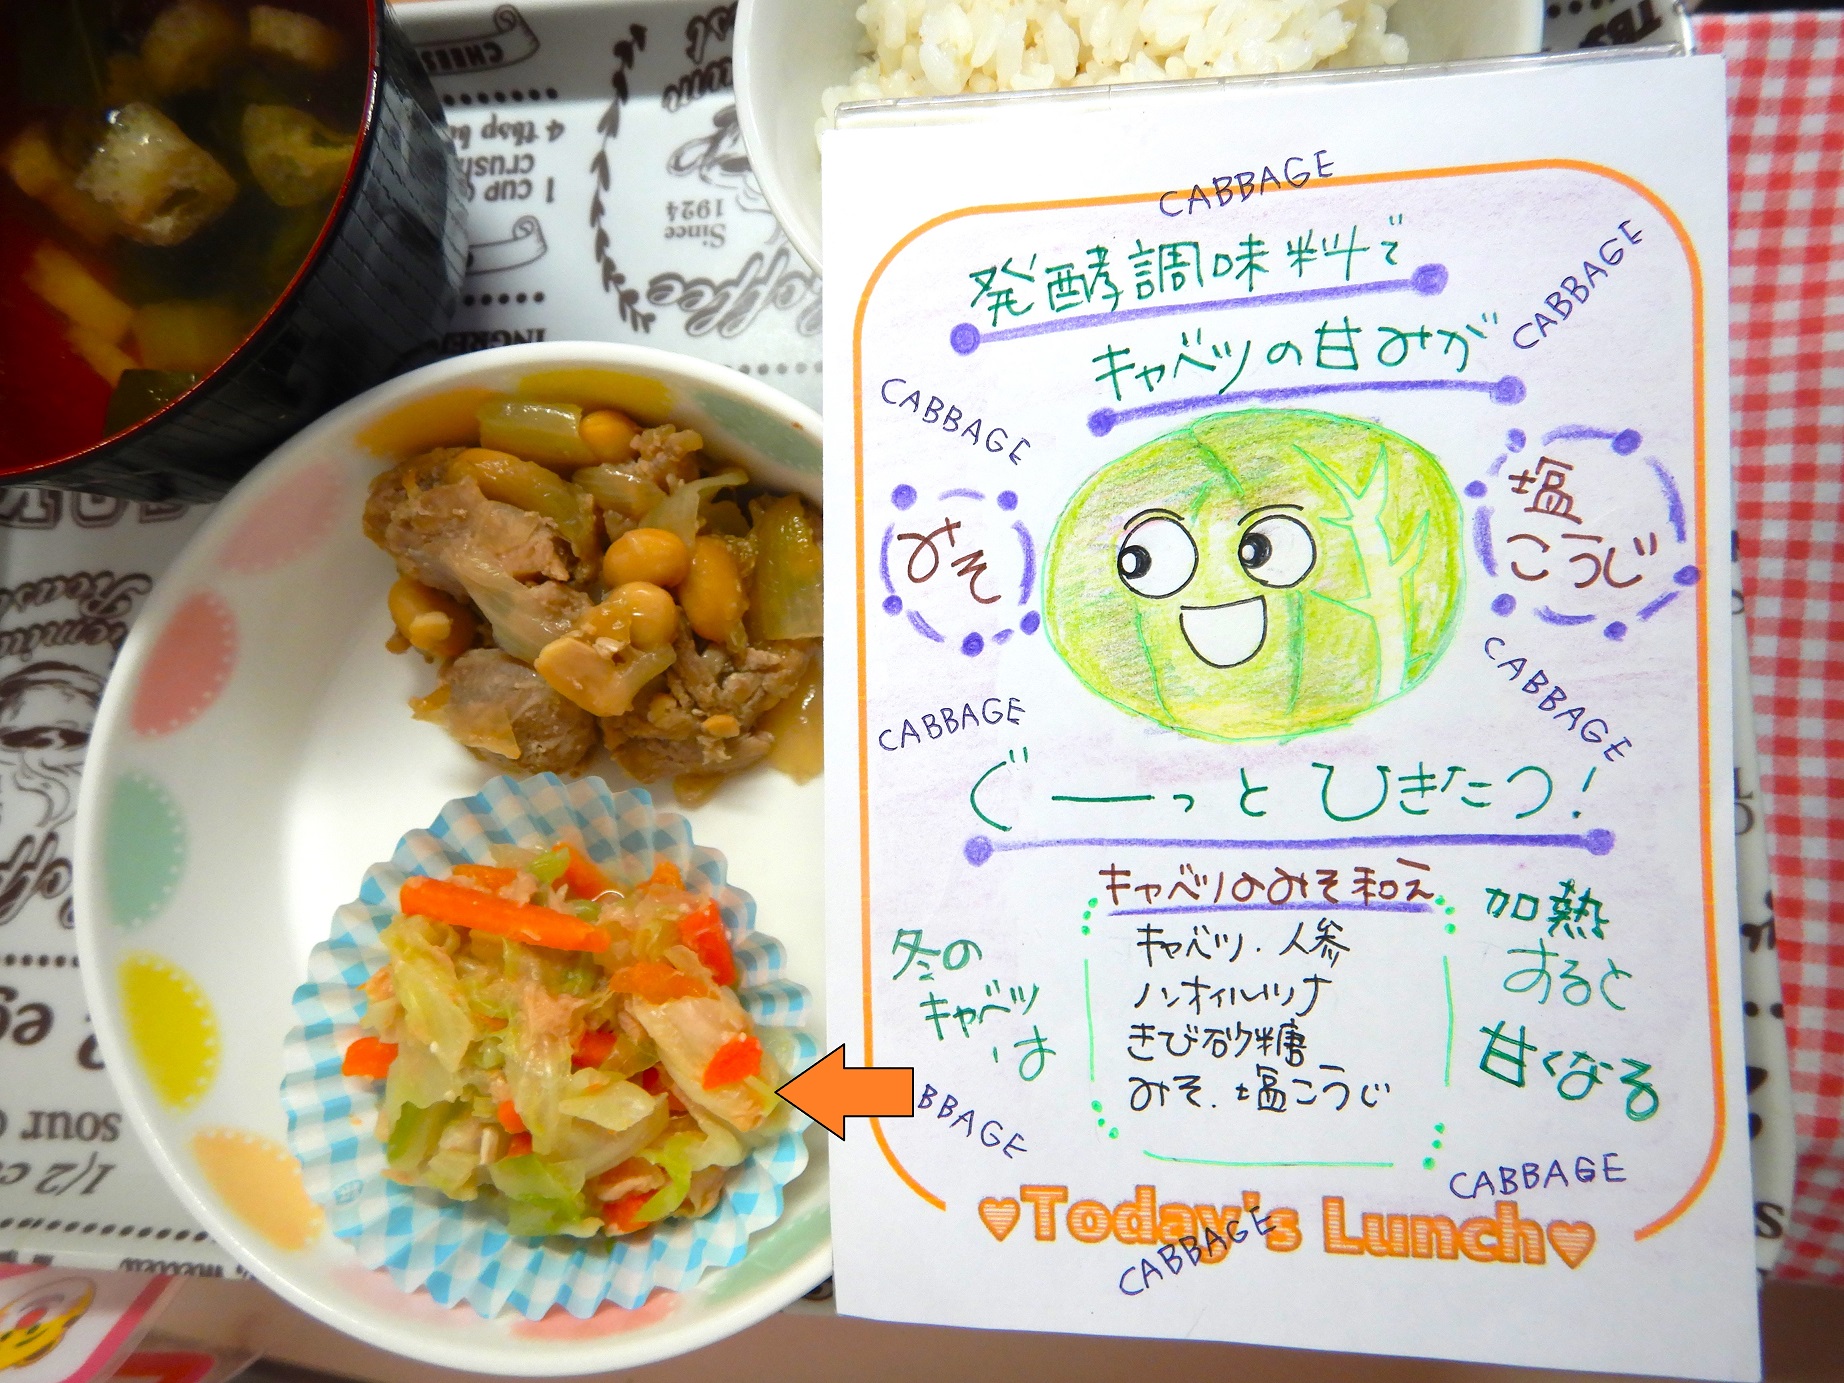 CABBAGE
発酵調味料で
CABBAGE
キャベツの甘みが
CABBAGE
みそ
塩
こうじ
CABBAGE
CABBAGE
ぐーっとひきたつ!
キャベツのみそ和え
キャベツ・人参
ノンオイルツナ
きび砂糖
みそ・塩こうじ
冬の
キャベツ
は
加熱
すると
甘くなる
BBAGE
CABBAGE
♥Today's Lunch♥
CABBAGE
CHEES
4 tbsp
crush
1 CUP
Since
1924
Coffee
INGRE
sour
1/2